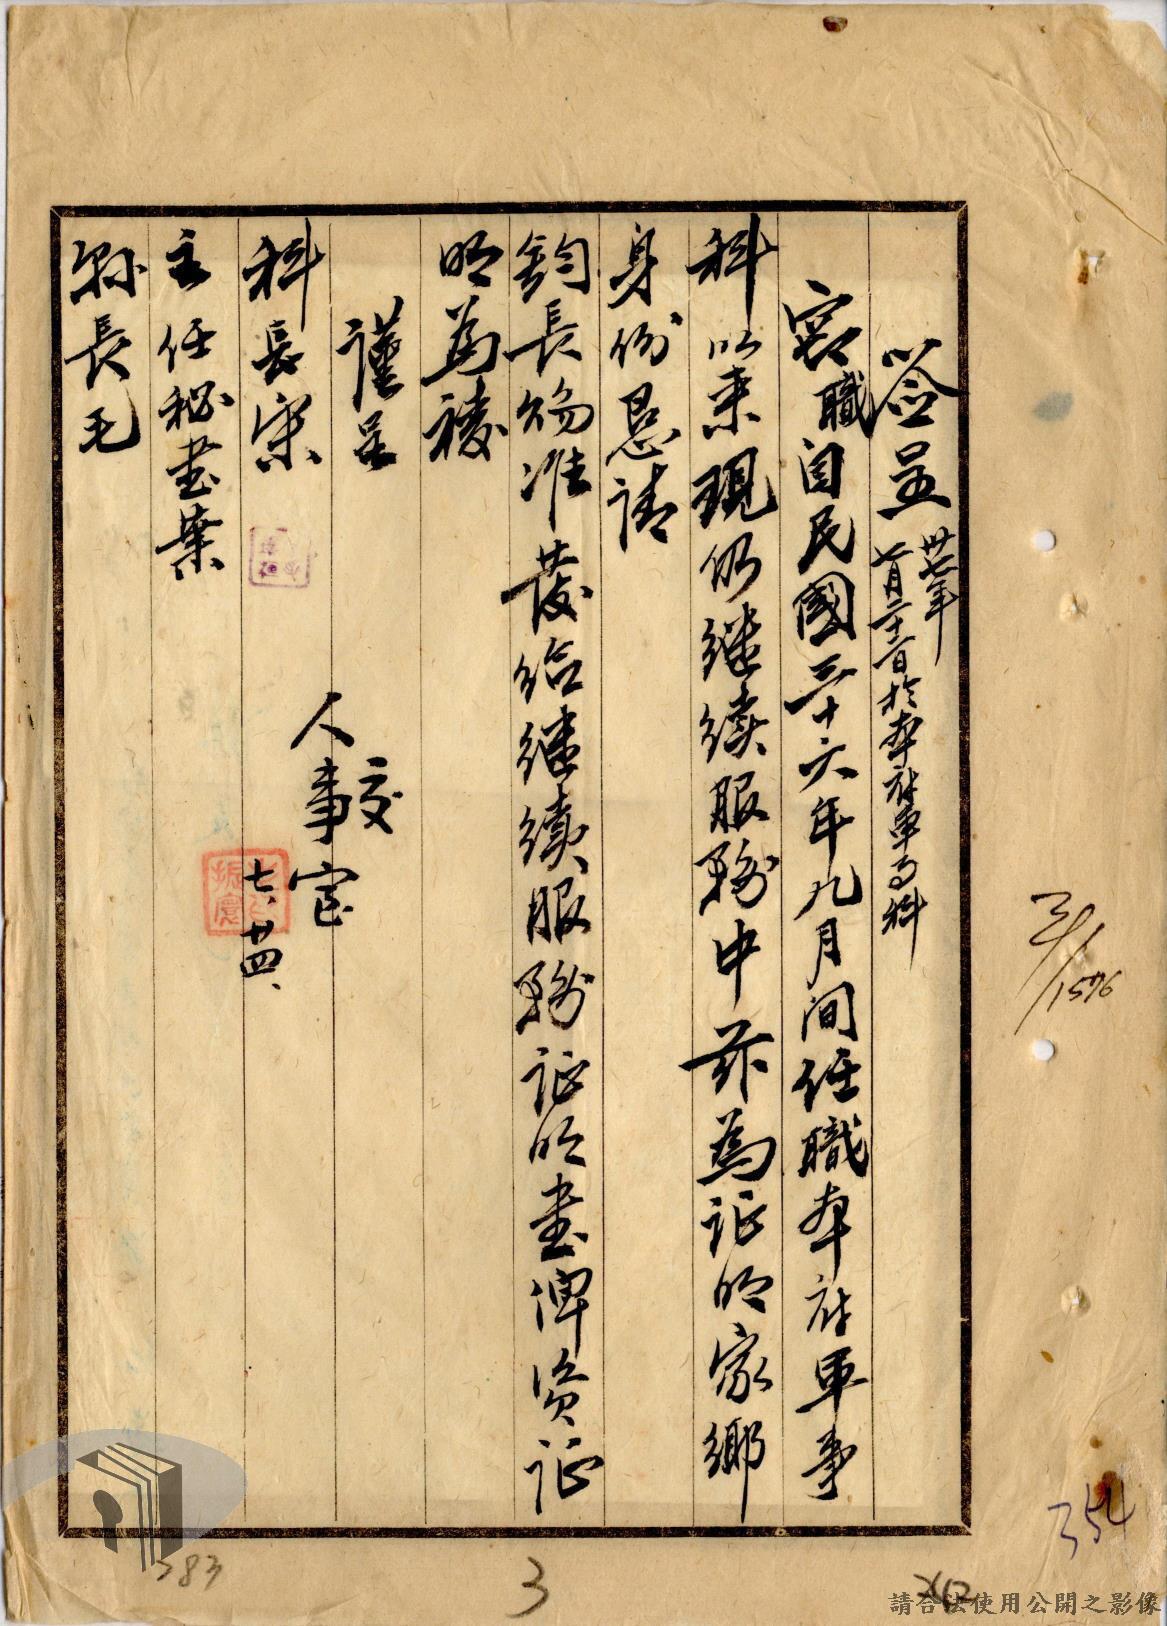 簽呈 卅七年
七月二十二日於本府軍事科
竊職自民國三十六年九月間任職本府軍事
科以来現仍继续服務中茲為证明家鄉
身份恳请
鈞長赐准發给继续服務证明書俾资证
明為祷
謹呈
科長宋
主任秘書葉
縣長毛
交
人事室
七、廿四、
3/1576
354
383
3
請合法使用公開之影像